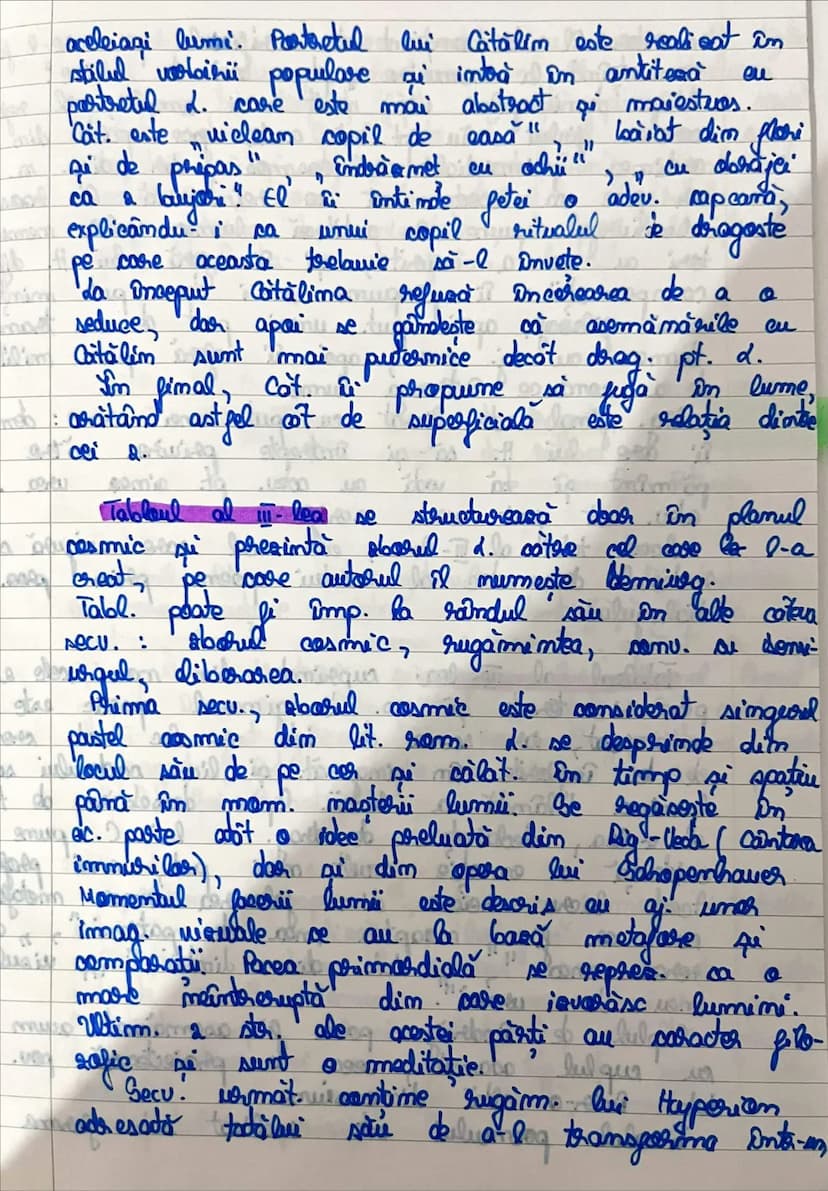 aceleiași lumi. Portretul lui Cătălin este realizat în
stilul vorbirii populare și intră în antiteză cu
portretul L. care este mai abstract și maiestuos.
Căt. este „viclean copil de casă", „băiat din flori
și de pripas", „îndrăzneț cu ochii", „cu obrăjei
ca a bujori" El îi întinde fetei o adev. capcană,
explicându-i ca unui copil ritualul de dragoste
pe care aceasta trebuie să-l învețe.
La început Cătălina refuză încercarea de a o
seduce, dar apoi se gândește că asemănările cu
Cătălin sunt mai puternice decât drag. pt. L.
În final, Căt îi propune să fugă în lume,
arătând astfel cât de superficială este relația dintre
cei 2.
Tabloul al III-lea se structurează doar în planul
cosmic și prezintă zborul L. către cel care l-a
creat, pe care autorul îl numește Demiurg.
Tabl. poate fi împ. la rândul său în alte câteva
secv. : zborul cosmic, rugămintea, conv. cu Demi-
urgul, eliberarea.
Prima secv., zborul cosmic este considerat singurul
pastel cosmic din lit. rom. L. se desprinde din
locul său de pe cer și călăt. în timp și spațiu
până în mom. nașterii lumii. Se regăsește în
ac. parte atât o idee preluată din Rig-Veda (Cântarea
imnurilor), dar și din opera lui Schopenhauer
Momentul facerii lumii este descris cu aj. unor
imag. vizuale ce au la bază metafore și
comparații. Pacea primordială se reprez. ca o
mare neîntreruptă din care izvorăsc lumini.
Ultim. 2 str. ale acestei părți au caracter filo-
zofic și sunt o meditație.
Secv. următ. conține rugăm. lui Hyperion
adresată tatălui său de a-l transforma într-un